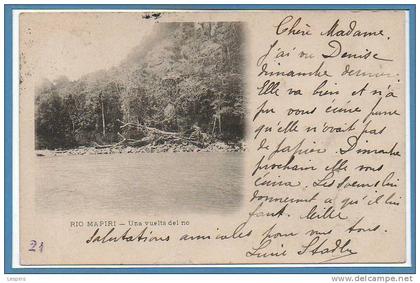 Chère Madame.
J'ai vu Denise
dimanche dernier.
Elle va bien et n'a
pu vous écrire parce
qu'elle n'avait pas
de papier. Dimanche
prochain elle vous
écrira. Les Soeurs lui
donneront ce qu'il lui
faut. Mille
Salutations amicales pour vous tous.
RIO MAPIRI — Una vuelta del rio
21
www.delcampe.net